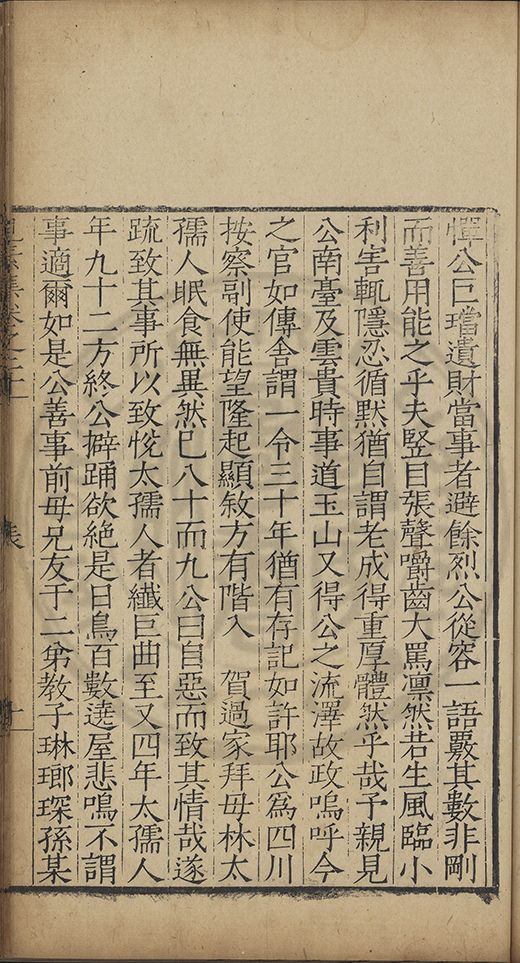 憚公已璫遺財當事者避餘烈公從容一語覈其數非剛
而善用能之乎夫竪目張聲嚼齒大罵凛然若生風臨小
利害輒隱忍循黙猶自謂老成得重厚體然乎哉予親見
公南臺及雲貴時事道玉山又得公之流澤故政嗚呼今
之官如傳舍謂一令三十年猶有存記如許耶公爲四川
按察副使能望隆起顯敘方有階入　賀過家拜母林太
孺人眠食無異然已八十而九公曰自惡而致其情哉遂
疏致其事所以致悅太孺人者纎巨曲至又四年太孺人
年九十二方終公擗踊欲絶是日鳥百數遶屋悲鳴不謂
事適爾如是公善事前母兄友于二弟教子琳瑯琛孫某
集卷之二十